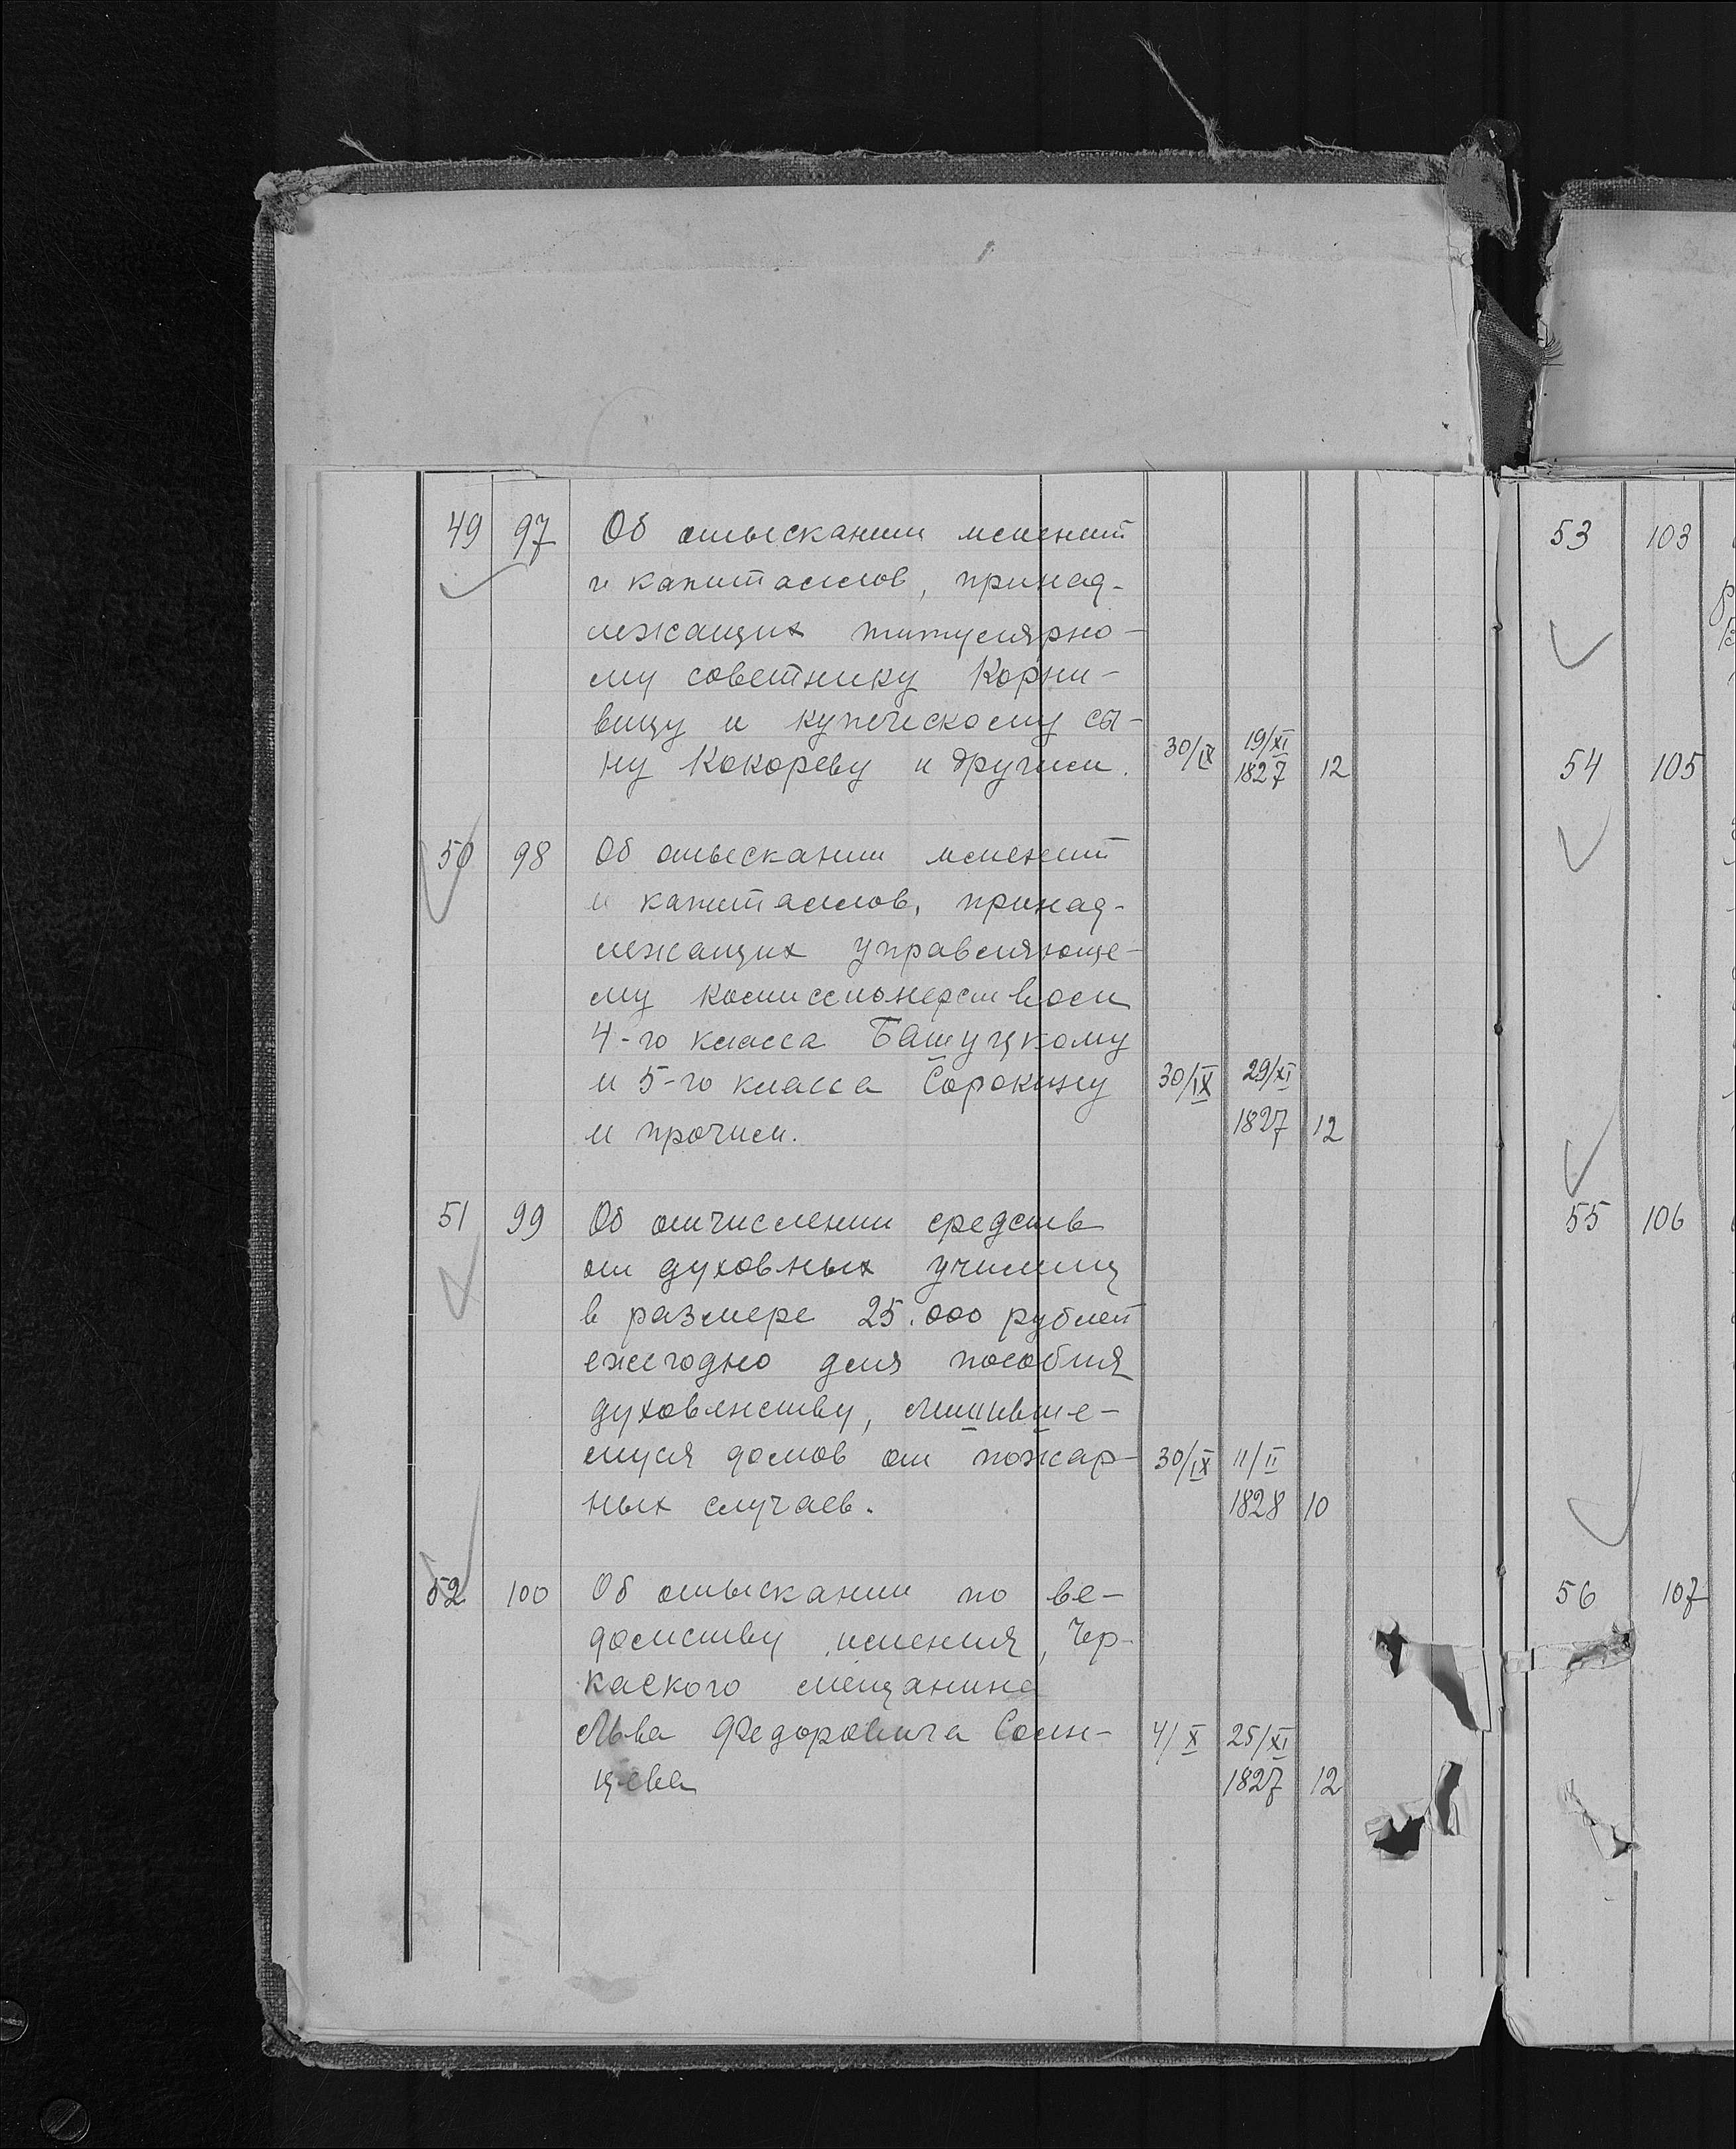 49 97 Об отыскании имений
и капиталов, принад-
лежащих титулярно-
му советнику Корни-
вицу и купеческому сы-
ну Кокореву и другим. 30/IX 19/XI 1827 12
50 98 Об отыскании имений
и капиталов, принад-
лежащих управляюще-
му комиссионерством
4-го класса Башуцкому
и 5-го класса Сорокину 30/IX 29/XI
и прочим. 1827 12
51 99 Об отчислении средств
от духовных училищ
в размере 25.000 рублей
ежегодно для пособия
духовенству, лишивше-
муся домов от пожар- 30/IX 11/II
ных случаев. 1828 10
52 100 Об отыскании по ве-
домству имения, Чер-
каского мещанина
Льва Федоровича Солн- 4/X 25/XI
цева 1827 12
53 103
54 105
55 106
56 107